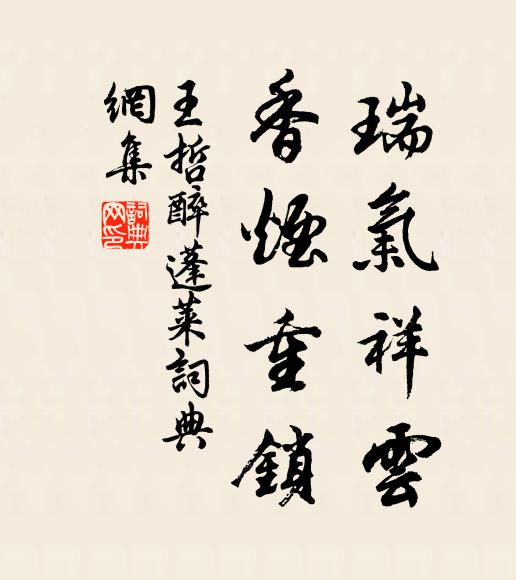 瑞氣祥雲
香煙重鎖
王哲醉蓬萊詞典
網集
詞典網印